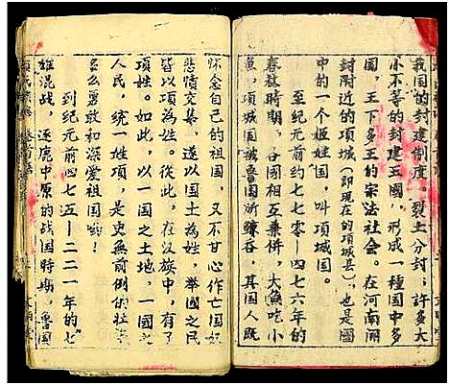 我国的封建制度。裂土分封;許多大
小不等的封建王國,形成一種国中多
國,王下多王的宗法社会。在河南開
封附近的項城(即現在的項城县),也是國
中的一个姬姓國,叫項城國。
至紀元前約七七〇—四七六年的
春秋時期,各国相互兼併,大魚吃小
魚,項城国被魯国所鯨吞,其国人既
怀念自己的祖國,又不甘心作亡国奴
悲憤交集,遂以国土為姓,舉國之民
皆以項為姓。從此,在汉族中,有了
項姓。如此,以一国之土地,一國之
人民,統一姓項,是史無前例的社会
多么勇敢和深愛祖国啊!
到紀元前四七五—二二一年的七
雄混战,逐鹿中原的战国時期,魯國